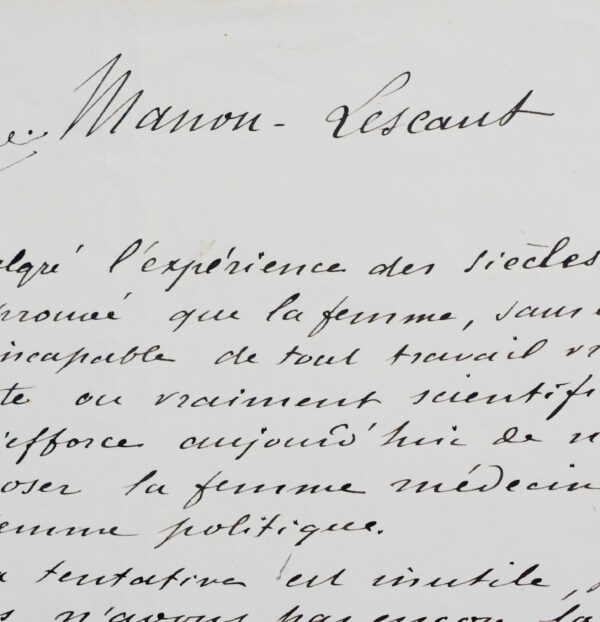 Manon - Lescaut
algré l'expérience des siècles
prouvé que la femme, sans
incapable de tout travail
te ou vraiment scientifi
'efforce aujourd'hui de
oser la femme médecin
emme politique.
tentative est inutile,
n'avons pas encore la